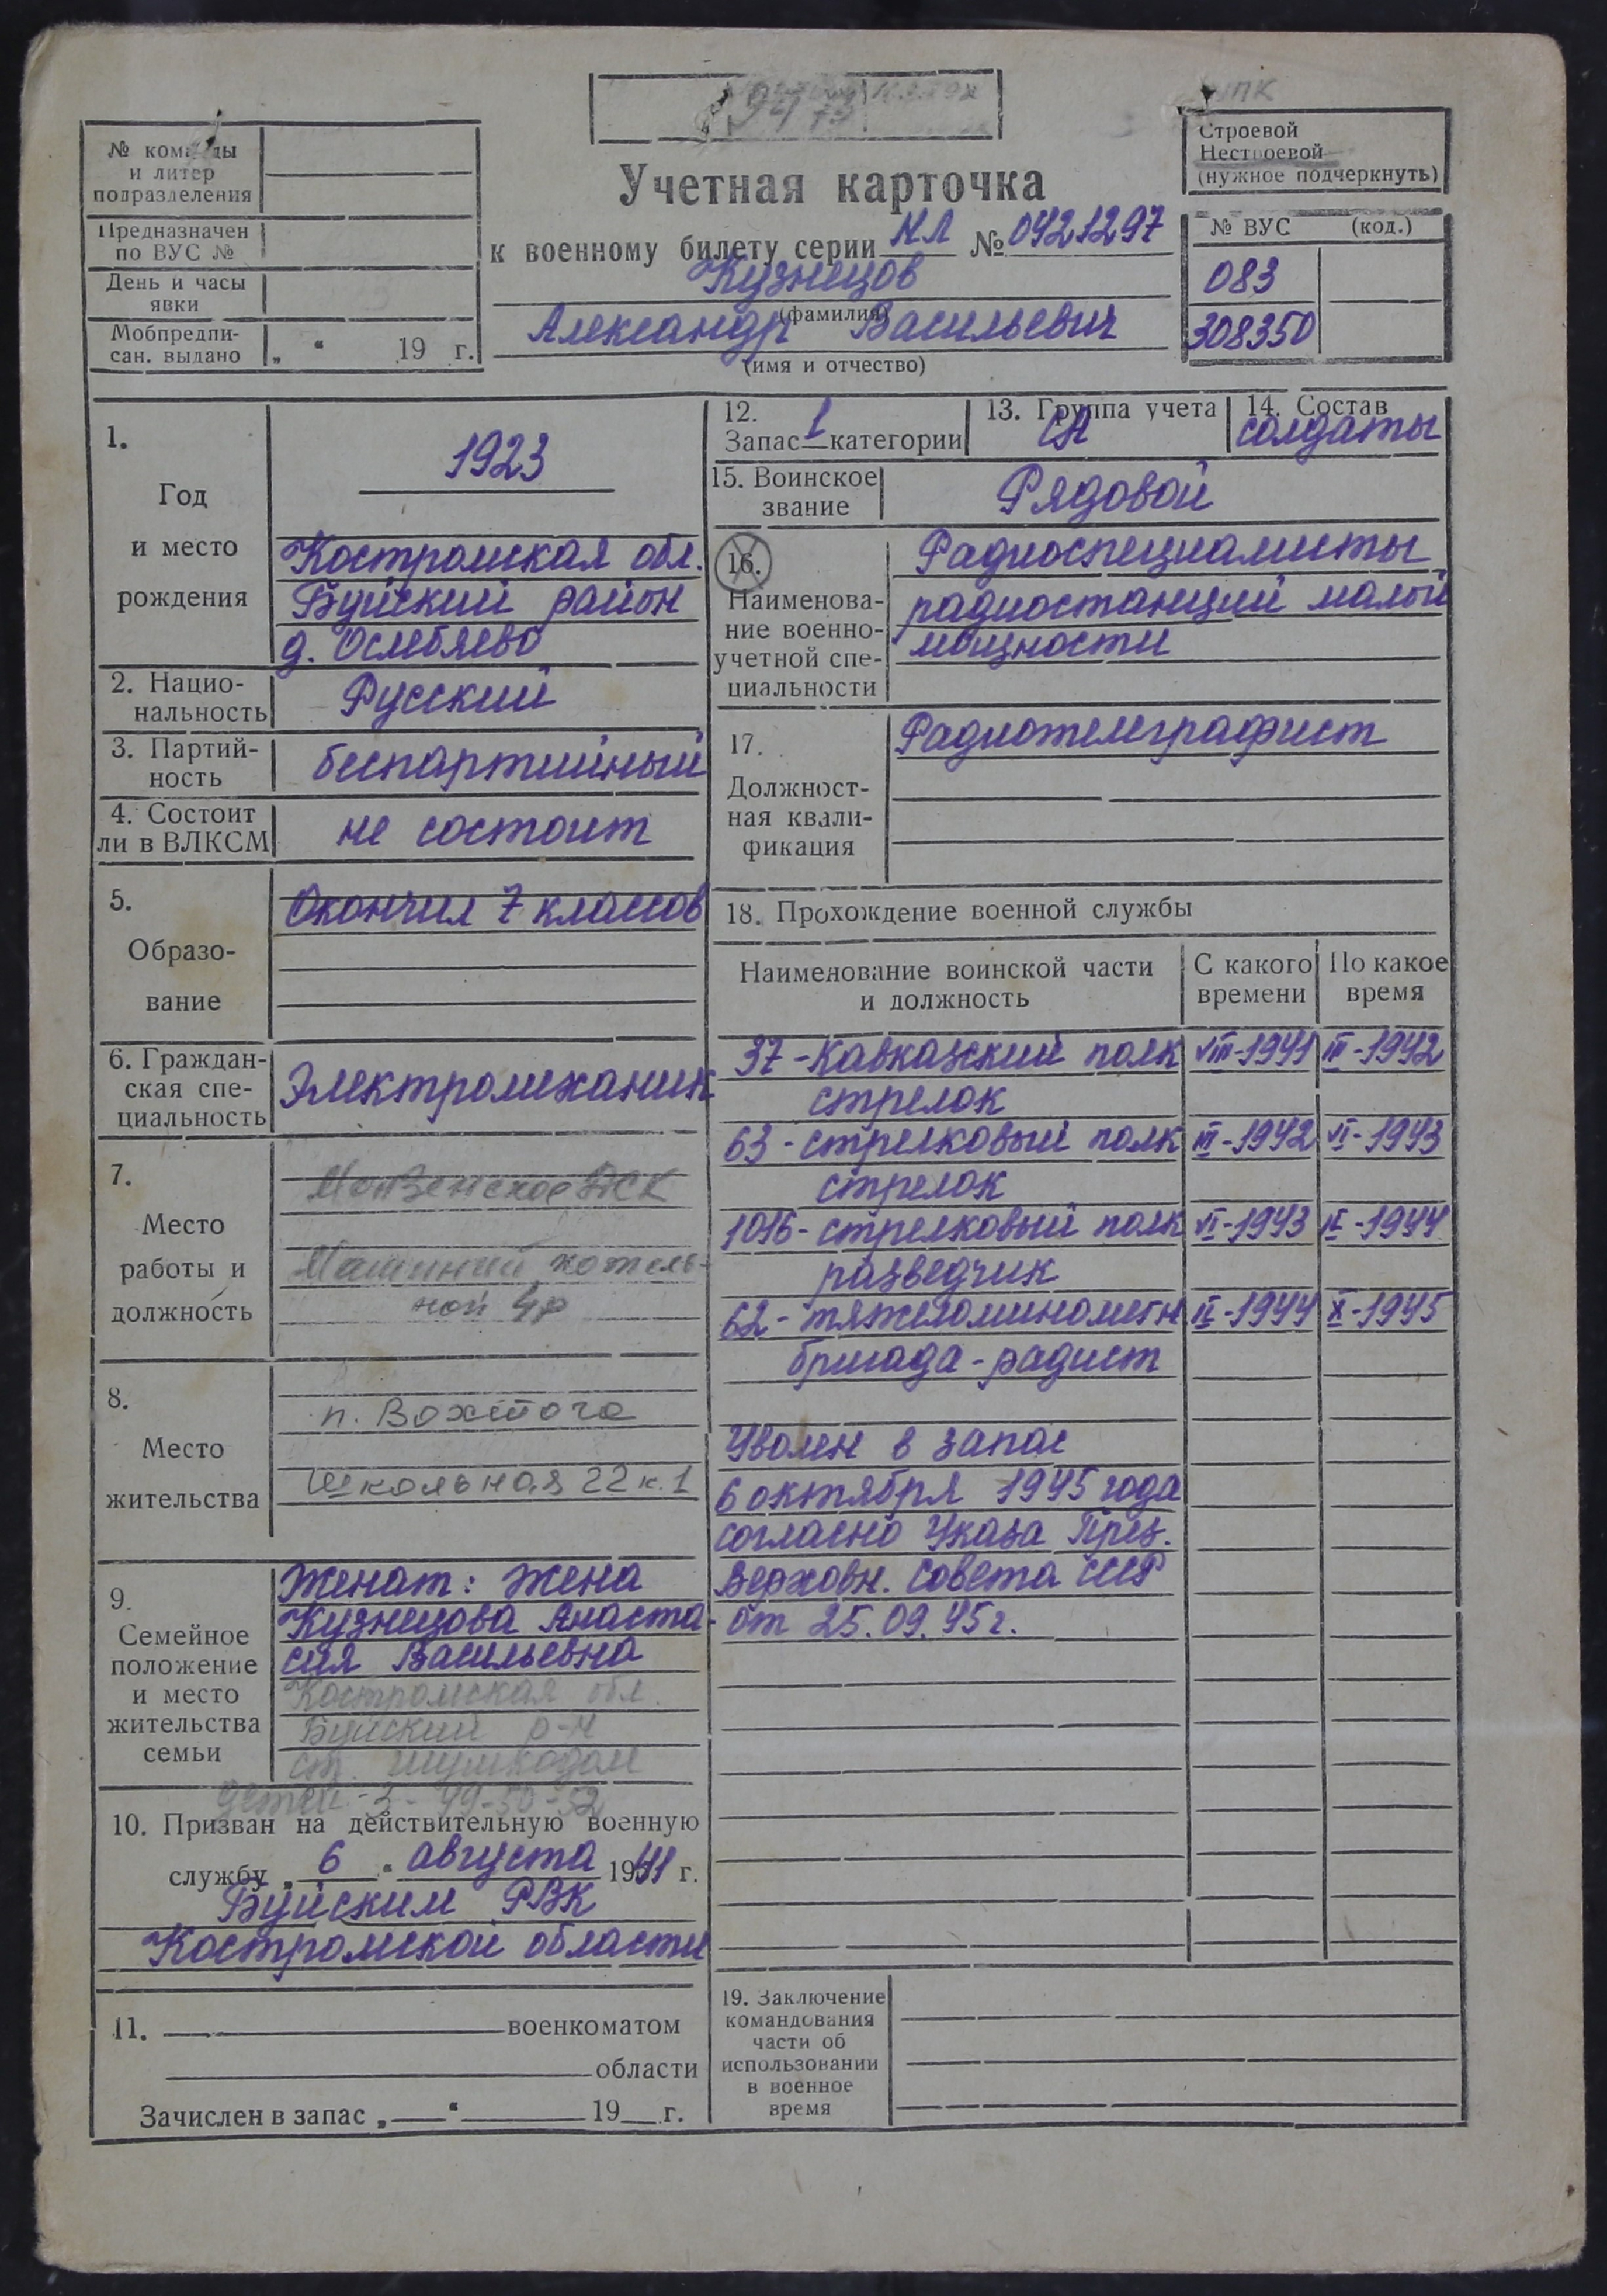 № команды
и литер
подразделения
Предназначен
по ВУС №
День и часы
явки
Мобпредпи-
сан. выдано „ “ 19 г.
Учетная карточка
к военному билету серии НЛ № 0421297
Кузнецов
(фамилия)
Александр Васильевич
(имя и отчество)
Строевой
Нестроевой
(нужное подчеркнуть)
№ ВУС (код.)
083
308350
1.
Год
и место
рождения
1923
Костромская обл.
Буйский район
д. Ослебяево
2. Нацио-
нальность
Русский
3. Партий-
ность
беспартийный
4. Состоит
ли в ВЛКСМ
не состоит
5.
Образо-
вание
Окончил 7 классов
6. Граждан-
ская спе-
циальность
Электромеханик
7.
Место
работы и
должность
ДСК
котель-
ной
8.
Место
жительства
п. Вохтога
Школьная 22 к. 1
9.
Семейное
положение
и место
жительства
семьи
Женат: жена
Кузнецова Анаста-
сия Васильевна
Костромская обл.
Буйский р-н
ст. Шушкодом
детей - 3 - 49-50-52
10. Призван на действительную военную
службу „ 6 “ августа 1941 г.
Буйским РВК
Костромской области
11. военкоматом
области
Зачислен в запас „ “ 19 г.
12.
Запас 1 категории
13. Группа учета
СА
14. Состав
солдаты
15. Воинское
звание
Рядовой
16.
Наименова-
ние военно-
учетной спе-
циальности
Радиоспециалисты
радиостанций малой
мощности
17.
Должност-
ная квали-
фикация
Радиотелеграфист
18. Прохождение военной службы
Наименование воинской части
и должность
С какого
времени
По какое
время
37 - Кавказский полк VIII-1941 III-1942
стрелок
63 - стрелковый полк III-1942 VI-1943
стрелок
1016 - стрелковый полк VI-1943 II-1944
разведчик
62 - тяжеломинометн II-1944 X-1945
бригада - радист
Уволен в запас
6 октября 1945 года
согласно Указа През.
Верховн. Совета СССР
от 25.09.45 г.
19. Заключение
командования
части об
использовании
в военное
время